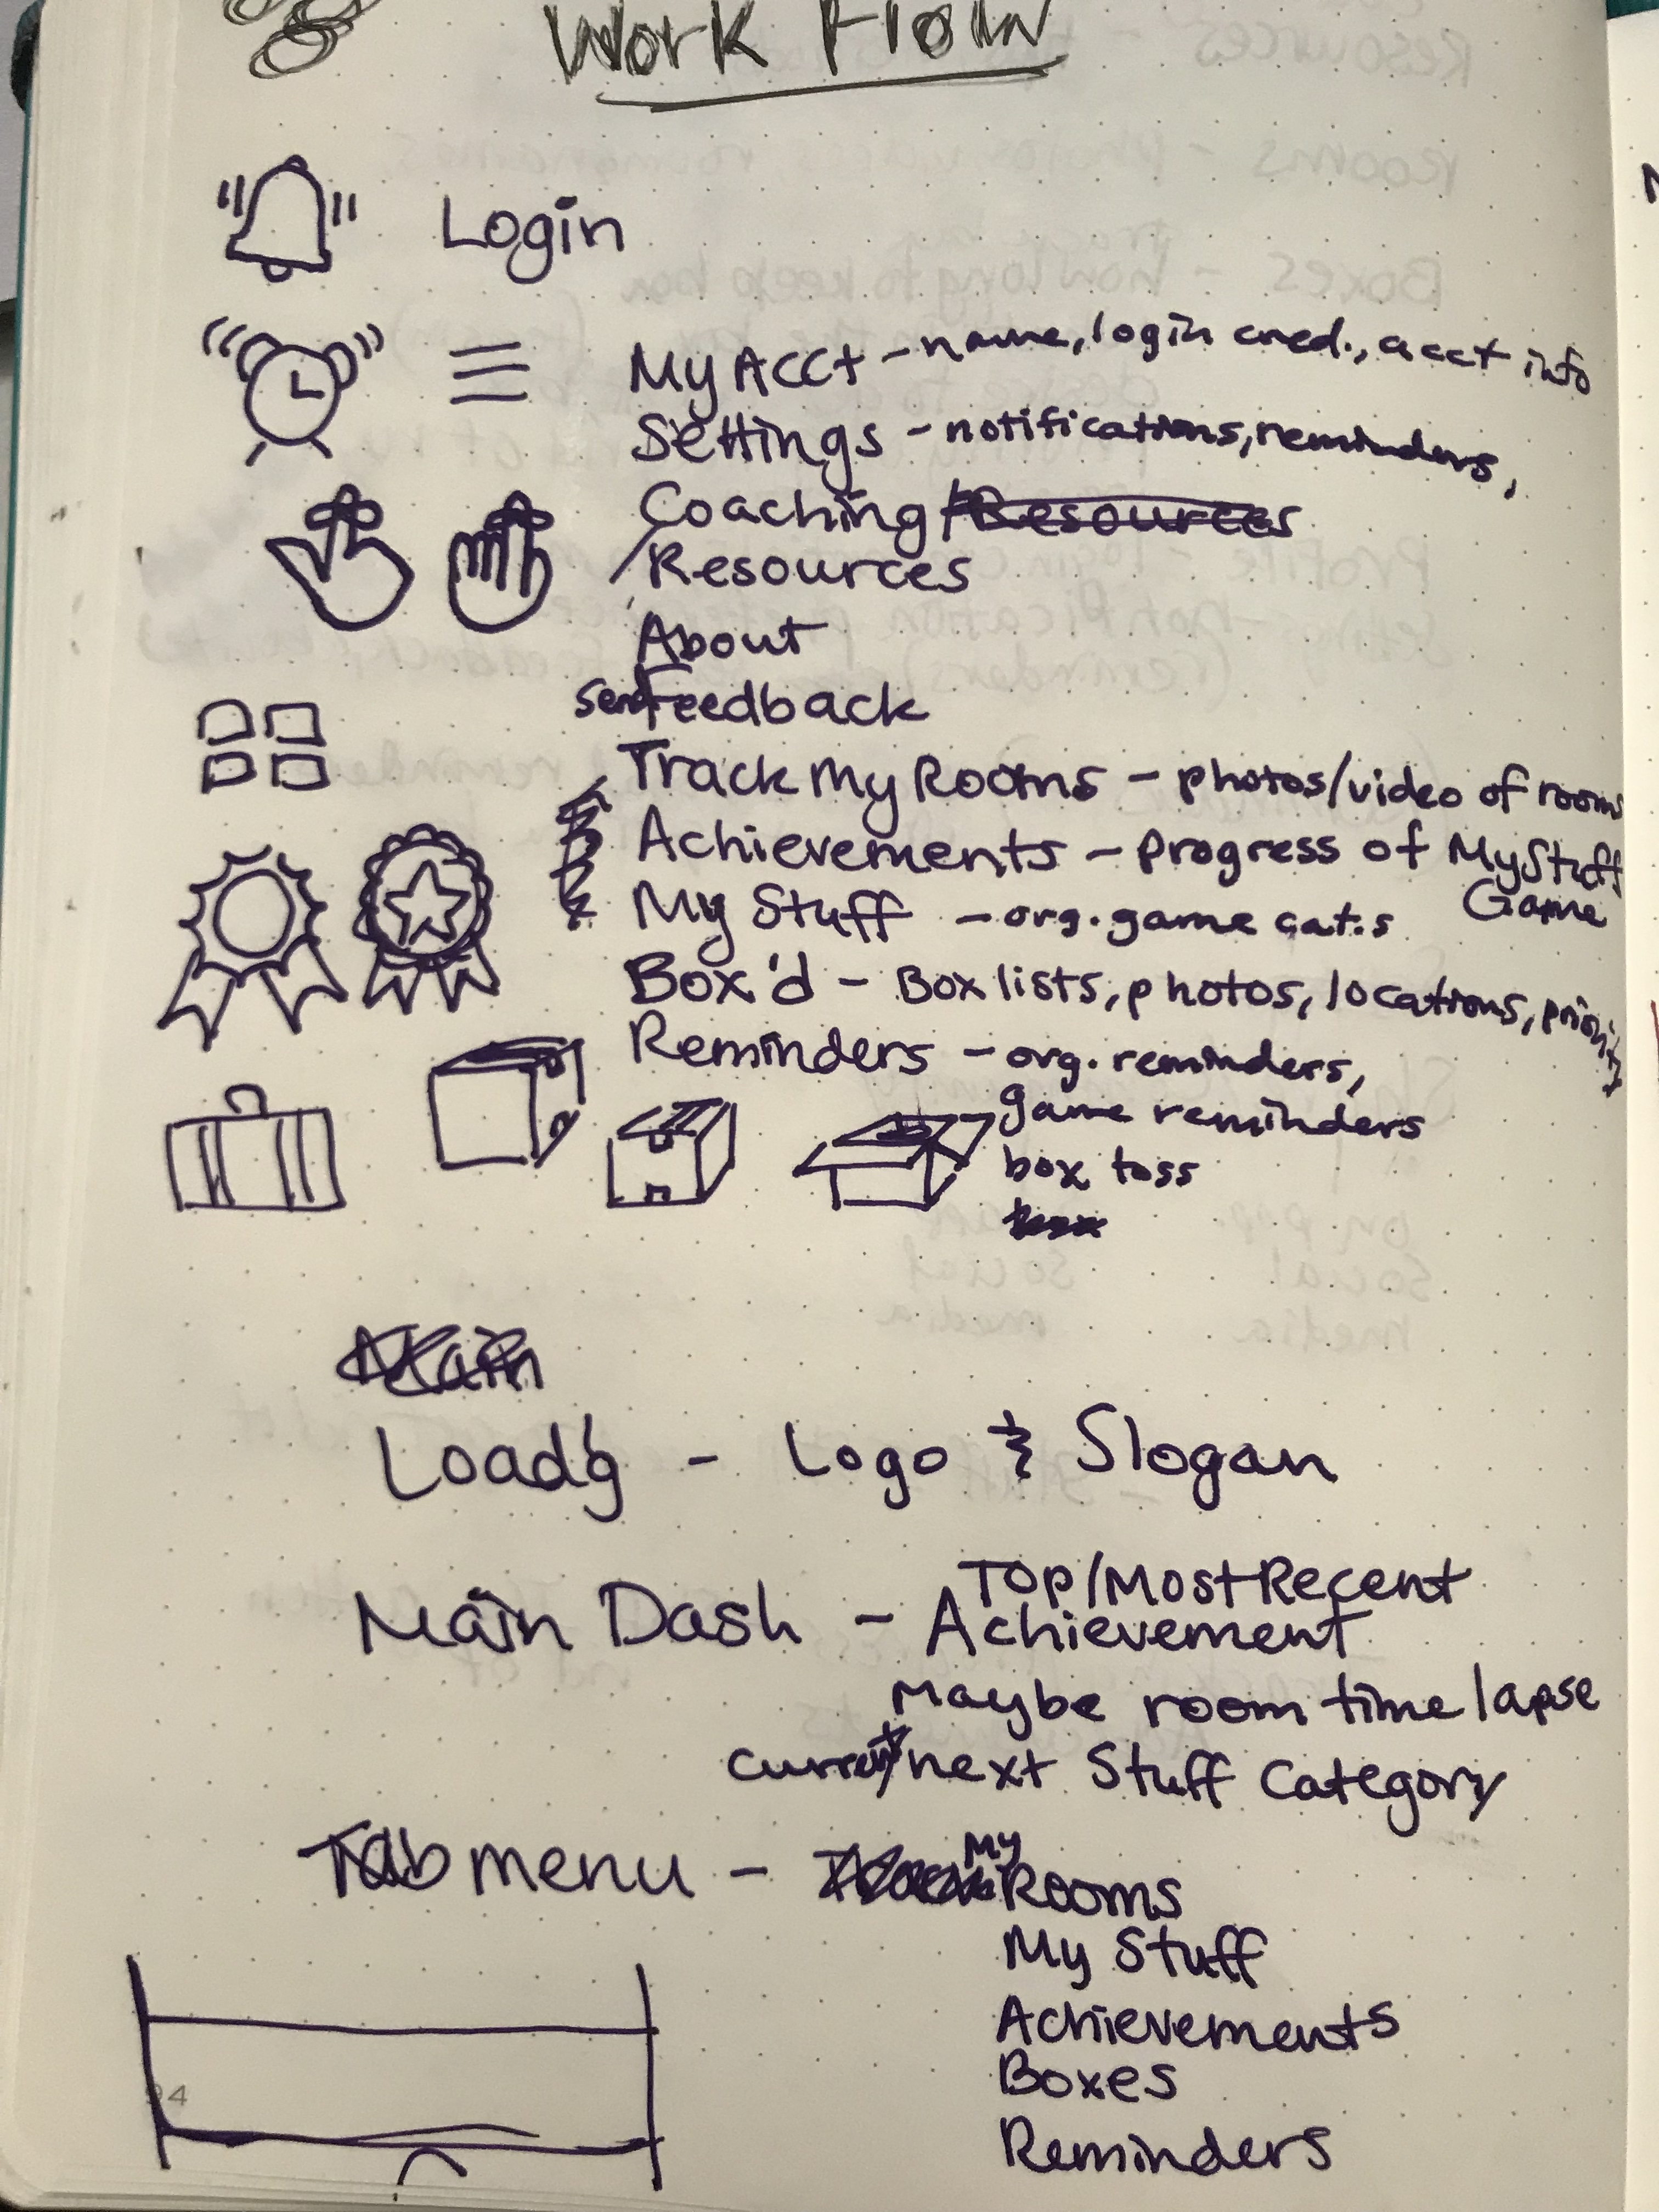 Work Flow
Login
My Acct - name, login cred., acct info
Settings - notifications, reminders,
Coaching/Resources
/Resources
About
Send Feedback
Track My Rooms - photos/video of rooms
Achievements - progress of My Stuff
Game
My Stuff - org. game cat.s
Box'd - Box lists, photos, locations, priority
Reminders - org. reminders,
game reminders
box toss
box
Main
Load'g - Logo & Slogan
Top/Most Recent
Main Dash - Achievement
Maybe room time lapse
current/next Stuff Category
Tab menu - My Rooms
My Stuff
Achievements
Boxes
94
Reminders